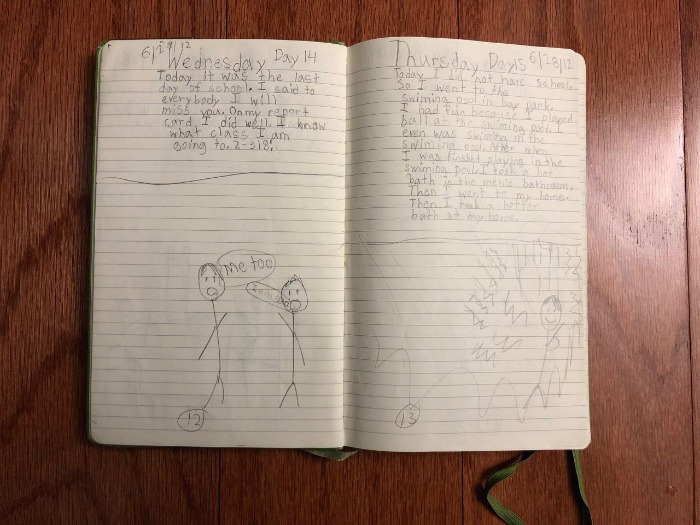 6/27/12
Wednesday Day 14
Today it was the last
day of school. I said to
everybody I will
miss you. On my report
card, I did well. I know
what class I am
going to. 2-318.
me too
12
Thursday Day 15 6/28/12
Today I did not have school.
So I went to the
swiming pool in bay park.
I had fun because I played
ball at the swiming pool. I
even was swiming in the
swiming pool. After when
I was finshed playing in the
swiming pool. I took a hot
bath in the men's bathroom.
Then I went to my home.
Then I took a hotter
bath at my home.
13